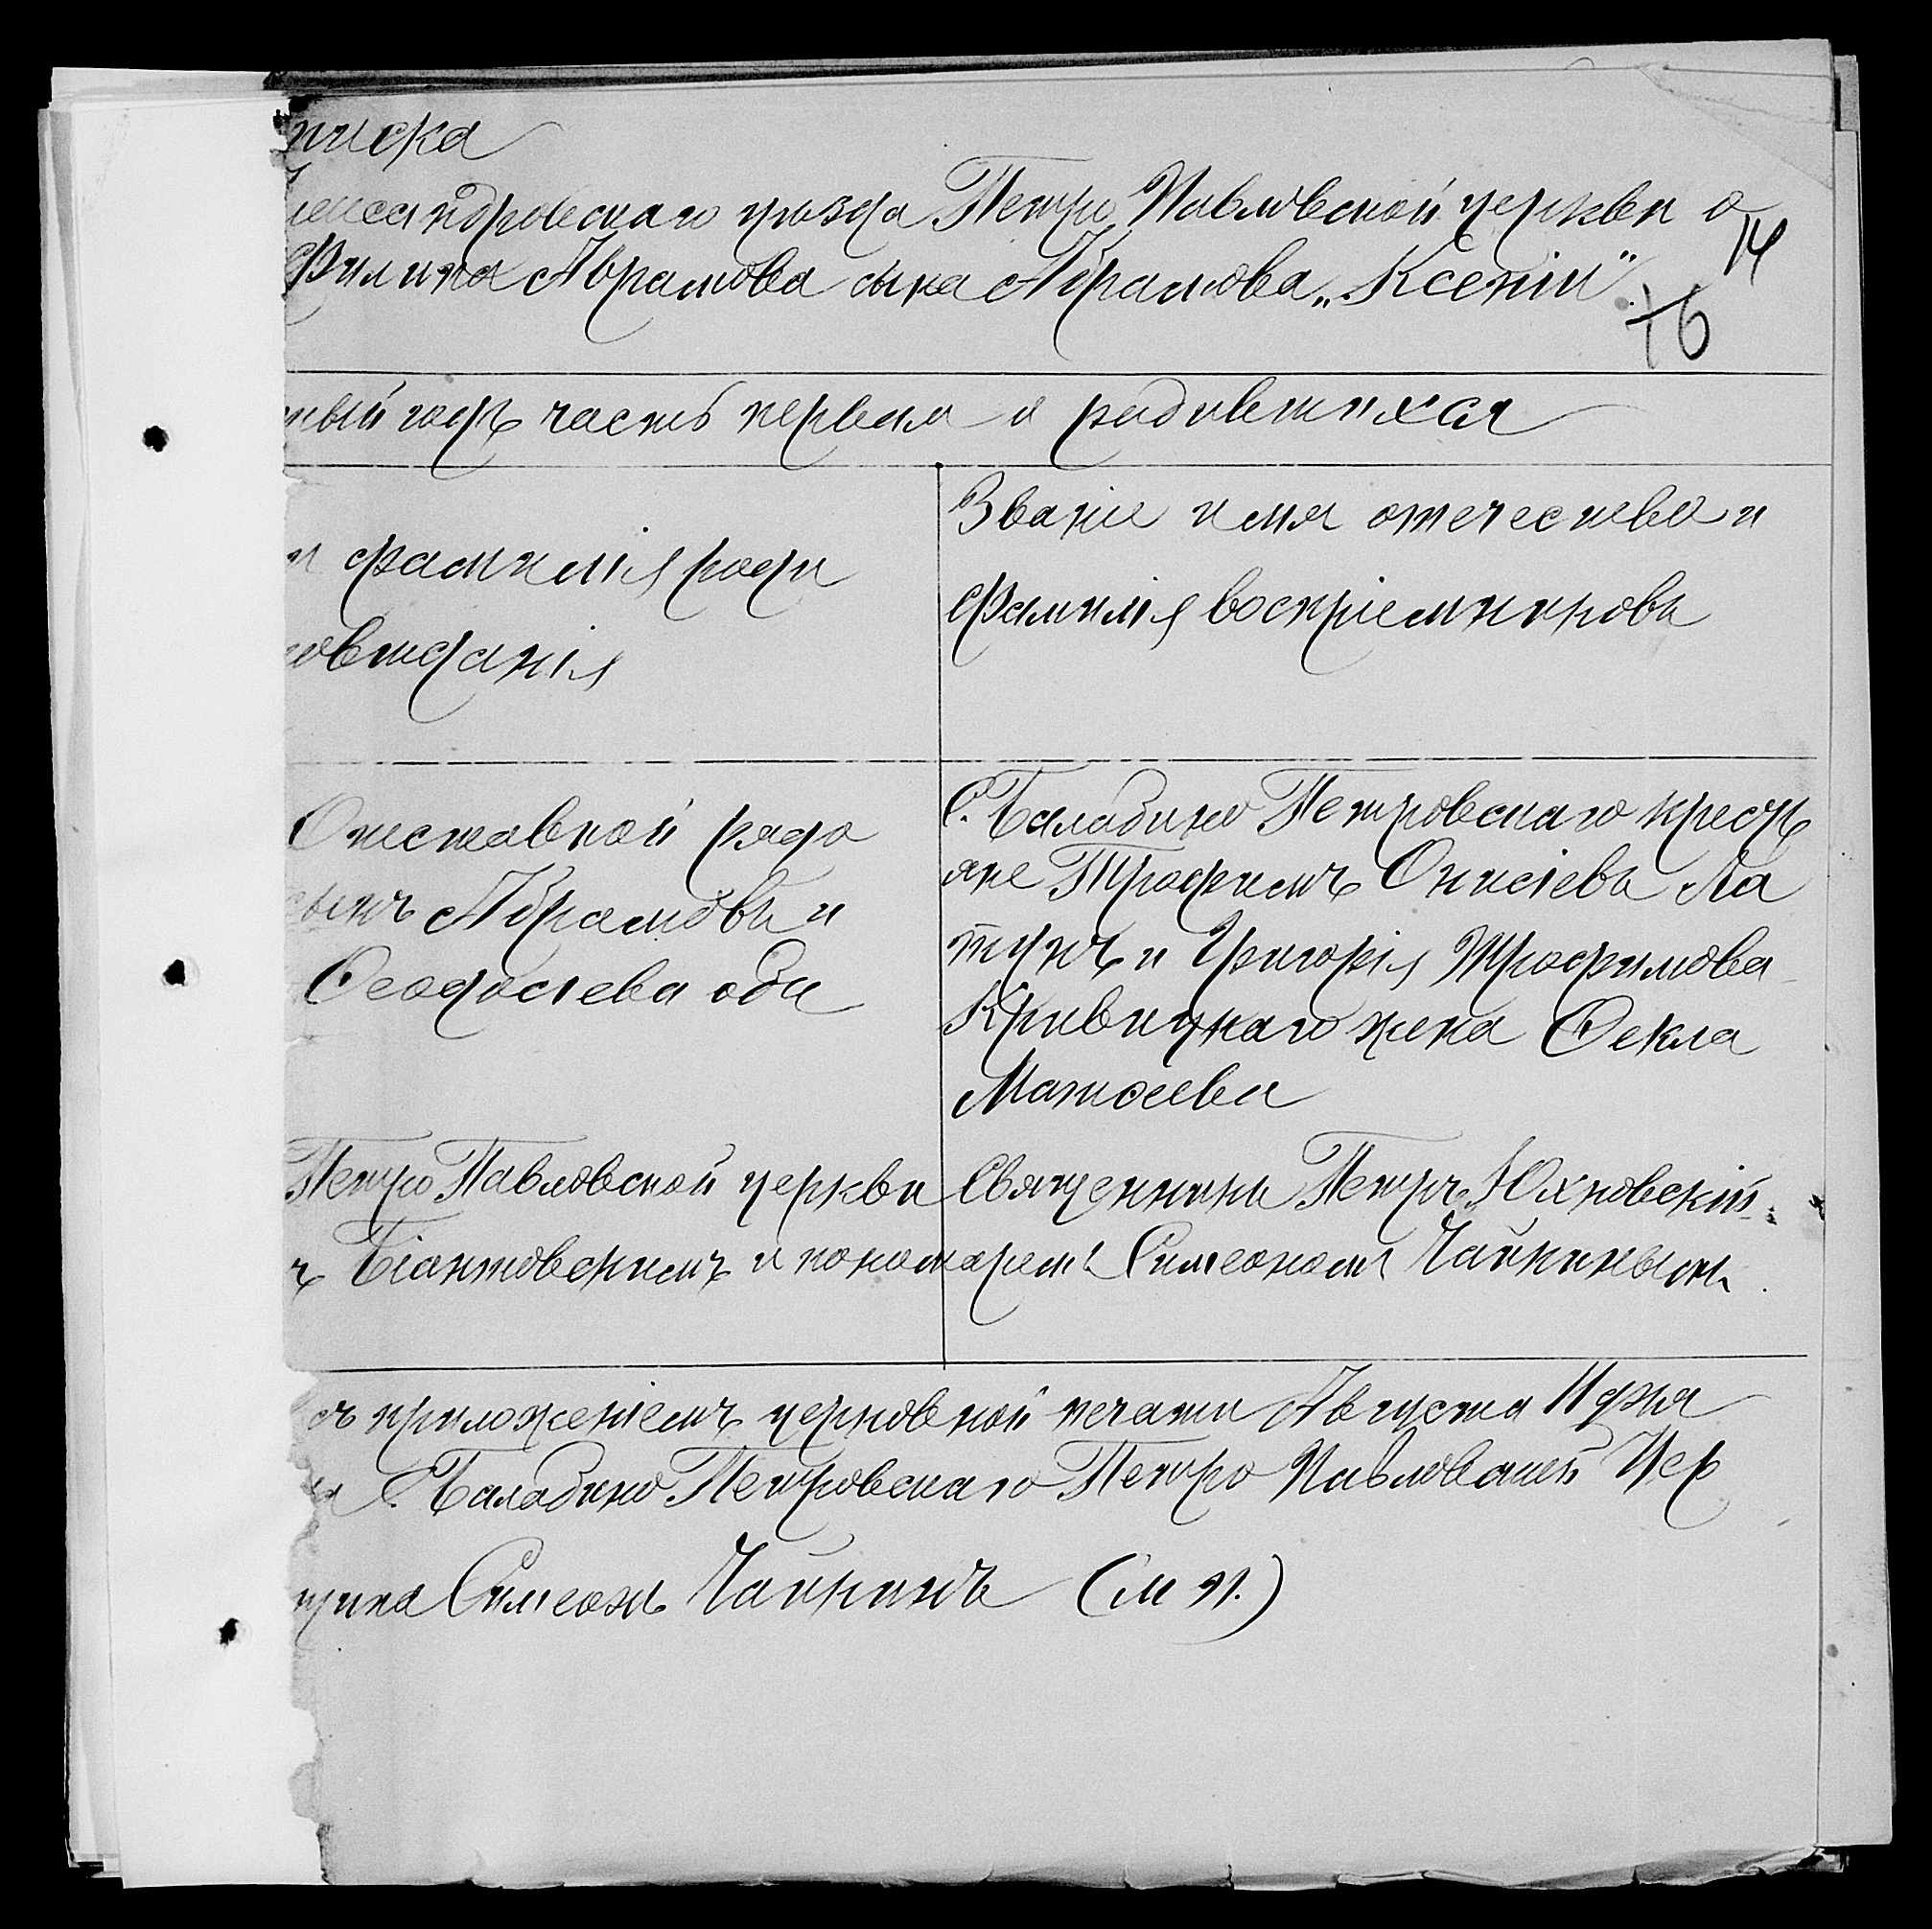 писка
лександровскаго уѣзда Петро Павловской церкви о
14
Филипа Абрамова сына Абрамова „Ксеніи"
76
ный годъ часть первая о родившихся
и фамилія роди
Званіе имя отечество и
фамилія воспріемниковъ
Отставной рядо
сынъ Абрамовъ и
Ѳеодосіева оба
С. Балабино Петровскаго кресть
яне Трофимъ Онисіевъ Ла
тунъ и Григорія Трофимова
Кривицкаго жена Ѳекла
Матѳеева
Петро Павловской церкви Священникъ Петръ Юхновскій
ъ Біантовскимъ и пономаремъ Симеономъ Чайкинымъ.
съ приложеніемъ церковной печати Августа 11 дня
С. Балабино Петровскаго Петро Павловской Цер
Симеонъ Чайкинъ (м п.)